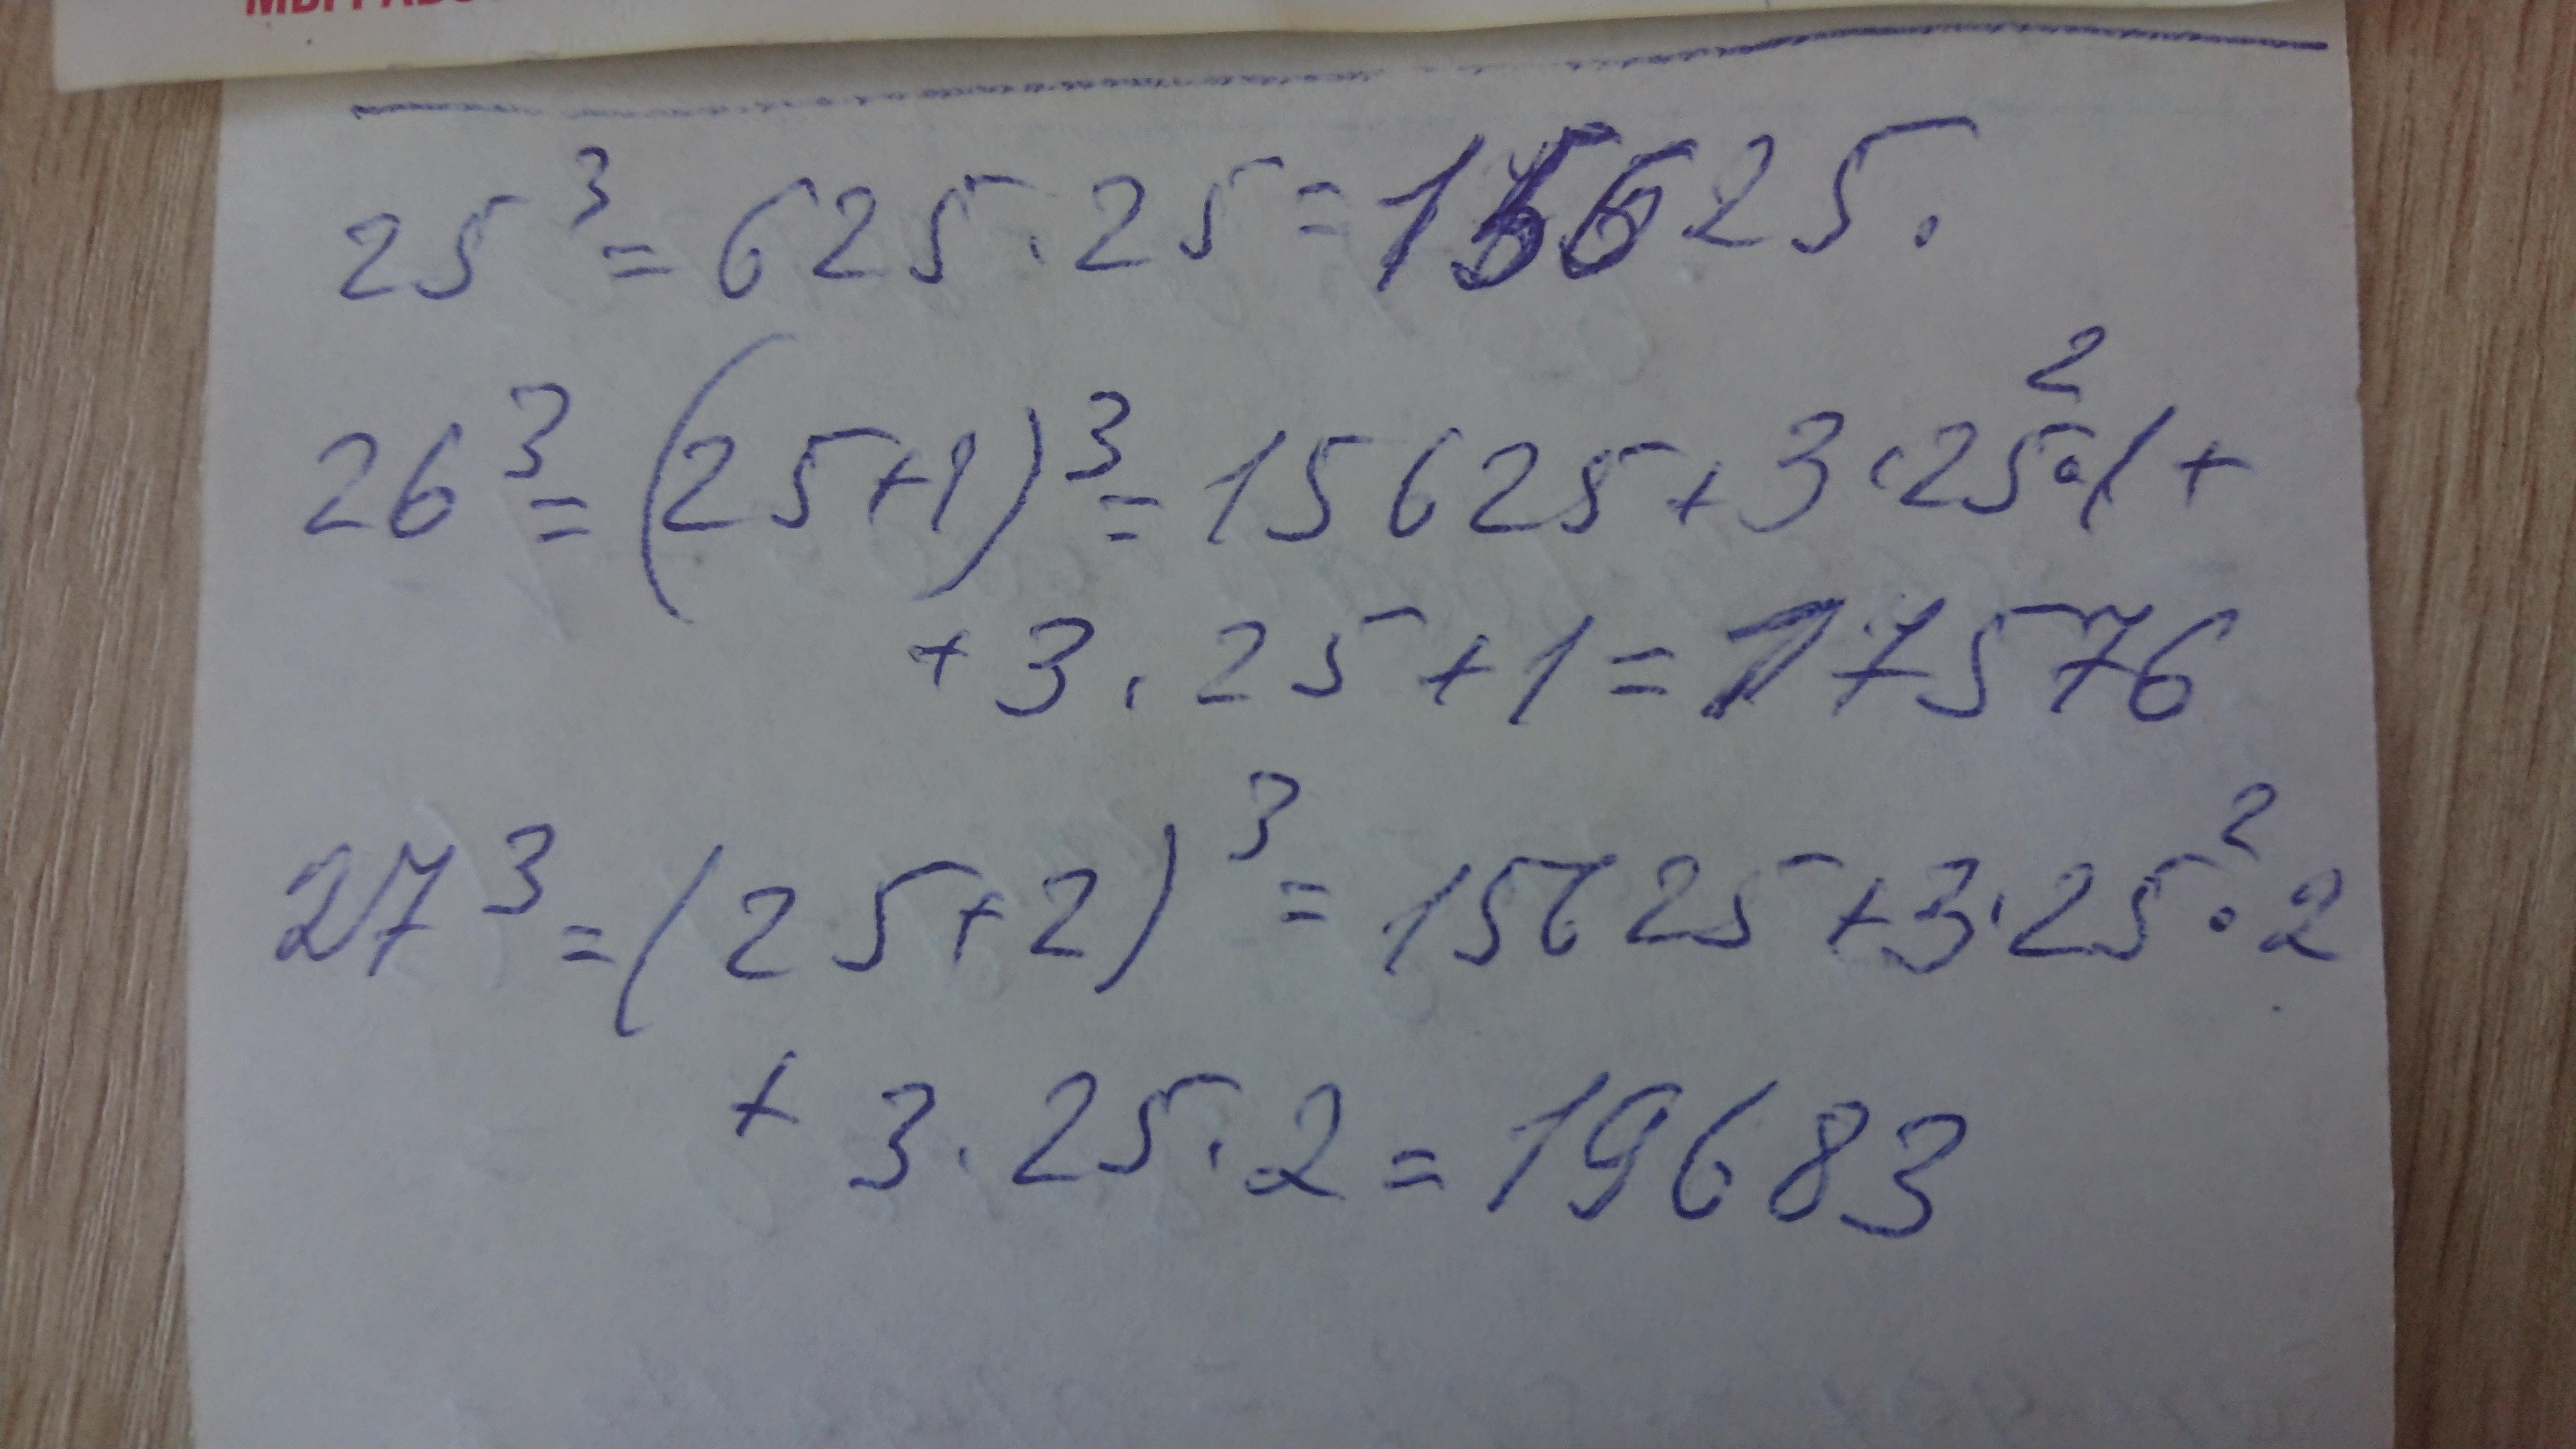 25³ = 625 · 25 = 15625.
26³ = (25+1)³ = 15625 + 3 · 25² · 1 +
+ 3 · 25 + 1 = 17576
27³ = (25+2)³ = 15625 + 3 · 25² · 2
+ 3 · 25 · 2 = 19683